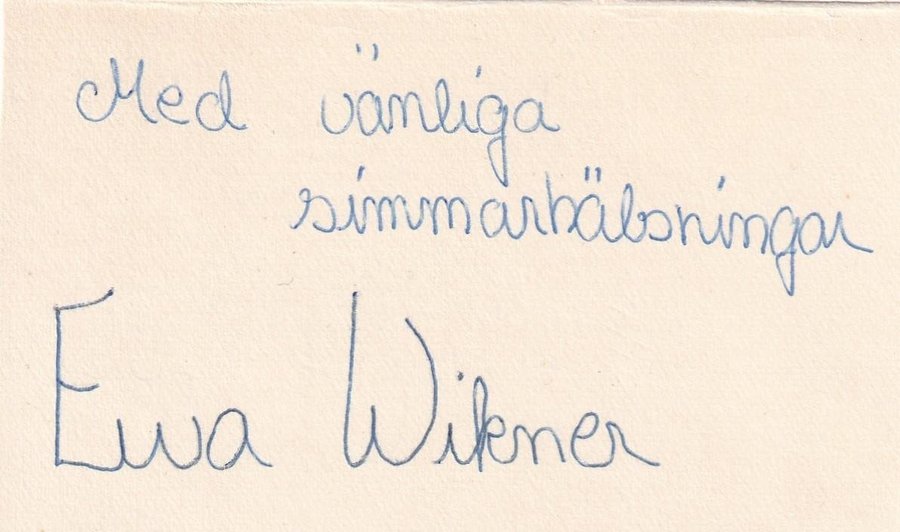 Med vänliga
simmarhälsningar
Ewa Wikner